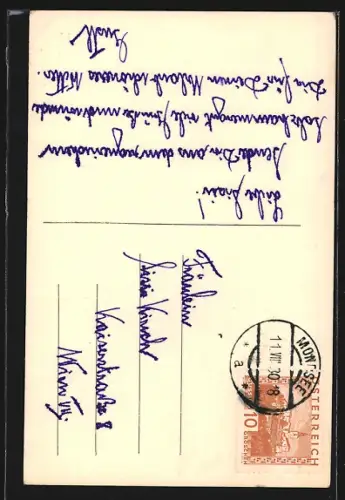 Liebe Lisei!
sende Dir, aus dem regnerischen
Salzkammergut viele Grüße und wünsche
Dir für Deinen Urlaub schöneres Wetter.
Gustl
Fräulein
Kaiserstrasse 8
Wien
MONDSEE
11.VIII.30
8
* a *
ÖSTERREICH
10
GROSCHEN